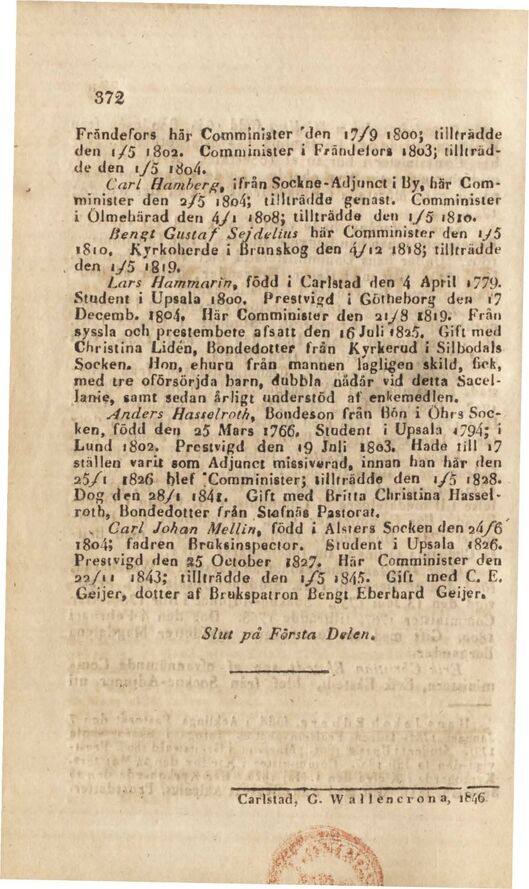 372
Frändefors här Comminister den 17/9 1800; tillträdde
den 1/5 1802. Comminister i Frändefors 1803; tillträd-
de den 1/5 1804.
Carl Hamberg, ifrån Sockne-Adjunct i By, här Com-
minister den 2/5 1804; tillträdde genast. Comminister
i Ölmehärad den 4/1 1808; tillträdde den 1/5 1810.
Bengt Gustaf Sejdelius här Comminister den 1/5
1810. Kyrkoherde i Brunskog den 4/12 1818; tillträdde
den 1/5 1819.
Lars Hammarin, född i Carlstad den 4 April 1779.
Student i Upsala 1800. Prestvigd i Götheborg den 17
Decemb. 1804. Här Comminister den 21/8 1819. Från
syssla och prestembete afsatt den 16 Juli 1825. Gift med
Christina Lidén, Bondedotter från Kyrkerud i Silbodals
Socken. Hon, ehuru från mannen lagligen skild, fick,
med tre oförsörjda barn, dubbla nådår vid detta Sacel-
lanie, samt sedan årligt understöd af enkemedlen.
Anders Hasselroth, Bondeson från Bön i Öhrs Soc-
ken, född den 25 Mars 1766. Student i Upsala 1794; i
Lund 1802. Prestvigd den 19 Juli 1803. Hade till 17
ställen varit som Adjunct missiverad, innan han här den
25/1 1826 blef Comminister; tillträdde den 1/5 1828.
Dog den 28/1 1841. Gift med Britta Christina Hassel-
roth, Bondedotter från Stafnäs Pastorat.
Carl Johan Mellin, född i Alsters Socken den 24/6
1804; fadren Bruksinspector. Student i Upsala 1826.
Prestvigd den 25 October 1827. Här Comminister den
22/11 1843; tillträdde den 1/5 1845. Gift med C. E.
Geijer, dotter af Brukspatron Bengt Eberhard Geijer.
Slut på Första Delen.
Carlstad, G. Wallencrona, 1846